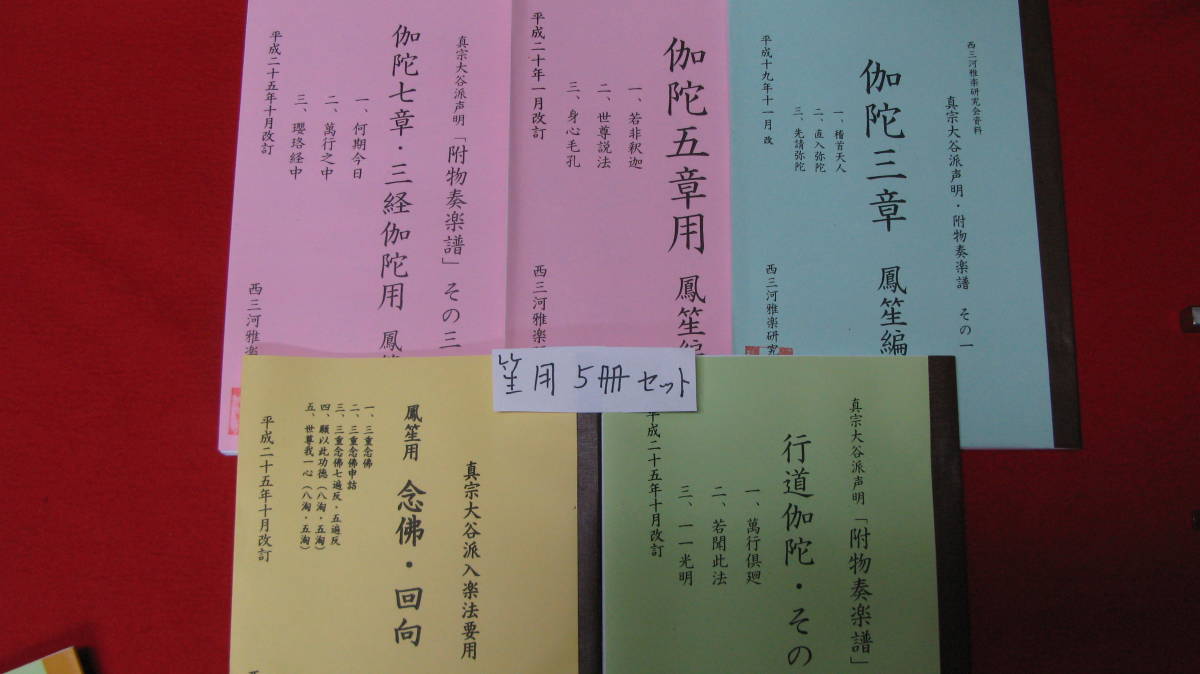 西三河雅楽研究会資料
真宗大谷派声明・附物奏楽譜 その一
伽陀三章 鳳笙編
一、稽首天人
二、直入弥陀
三、先請弥陀
平成十九年十一月 改
西三河雅楽研究
伽陀五章用 鳳笙編
一、若非釈迦
二、世尊説法
三、身心毛孔
平成二十年一月改訂
西三河雅楽研
真宗大谷派声明「附物奏楽譜」その三
伽陀七章・三経伽陀用 鳳笙
一、何期今日
二、萬行之中
三、瓔珞経中
平成二十五年十月改訂
西三河雅楽
笙用 5冊セット
真宗大谷派声明「附物奏楽譜」
行道伽陀・その
一、萬行倶廻
二、若聞此法
三、一一光明
平成二十五年十月改訂
真宗大谷派入楽法要用
鳳笙用 念佛・回向
一、三重念佛
二、三重念佛申詰
三、三重念佛七遍反・五遍反
四、願以此功徳(八淘・五淘)
五、世尊我一心(八淘・五淘)
平成二十五年十月改訂